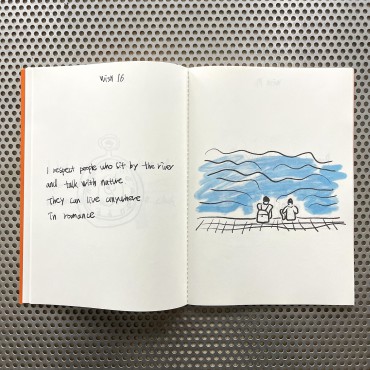 wish 16
I respect people who sit by the river
and talk with nature
They can live anywhere
in romance